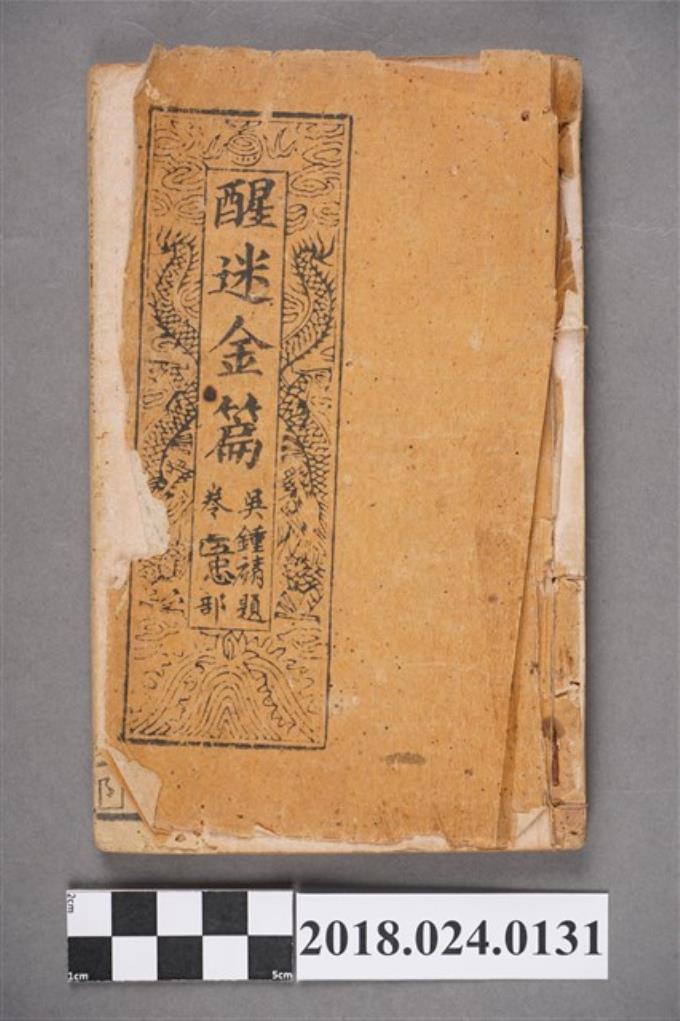 醒迷金篇
吳鍾靖題
卷五忠部
2cm
1cm
5cm
2018.024.0131